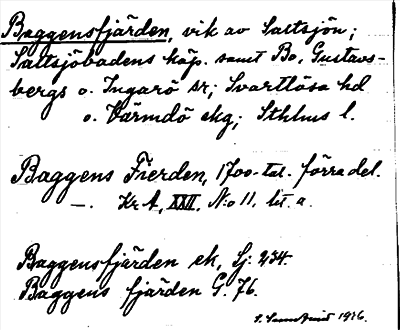 Baggensfjärden, vik av Saltsjön;
Saltsjöbadens köp. samt Bo, Gustavs-
bergs o. Ingarö sr; Svartlösa hd
o. Värmdö skg; Sthlms l.
Baggens Fierden, 1700-tal. förra del.
—. Kr A, XXII, N:o 11, lit. a.
Baggensfjärden ek, Sj: 234.
Baggens fjärden G. 76.
1926.